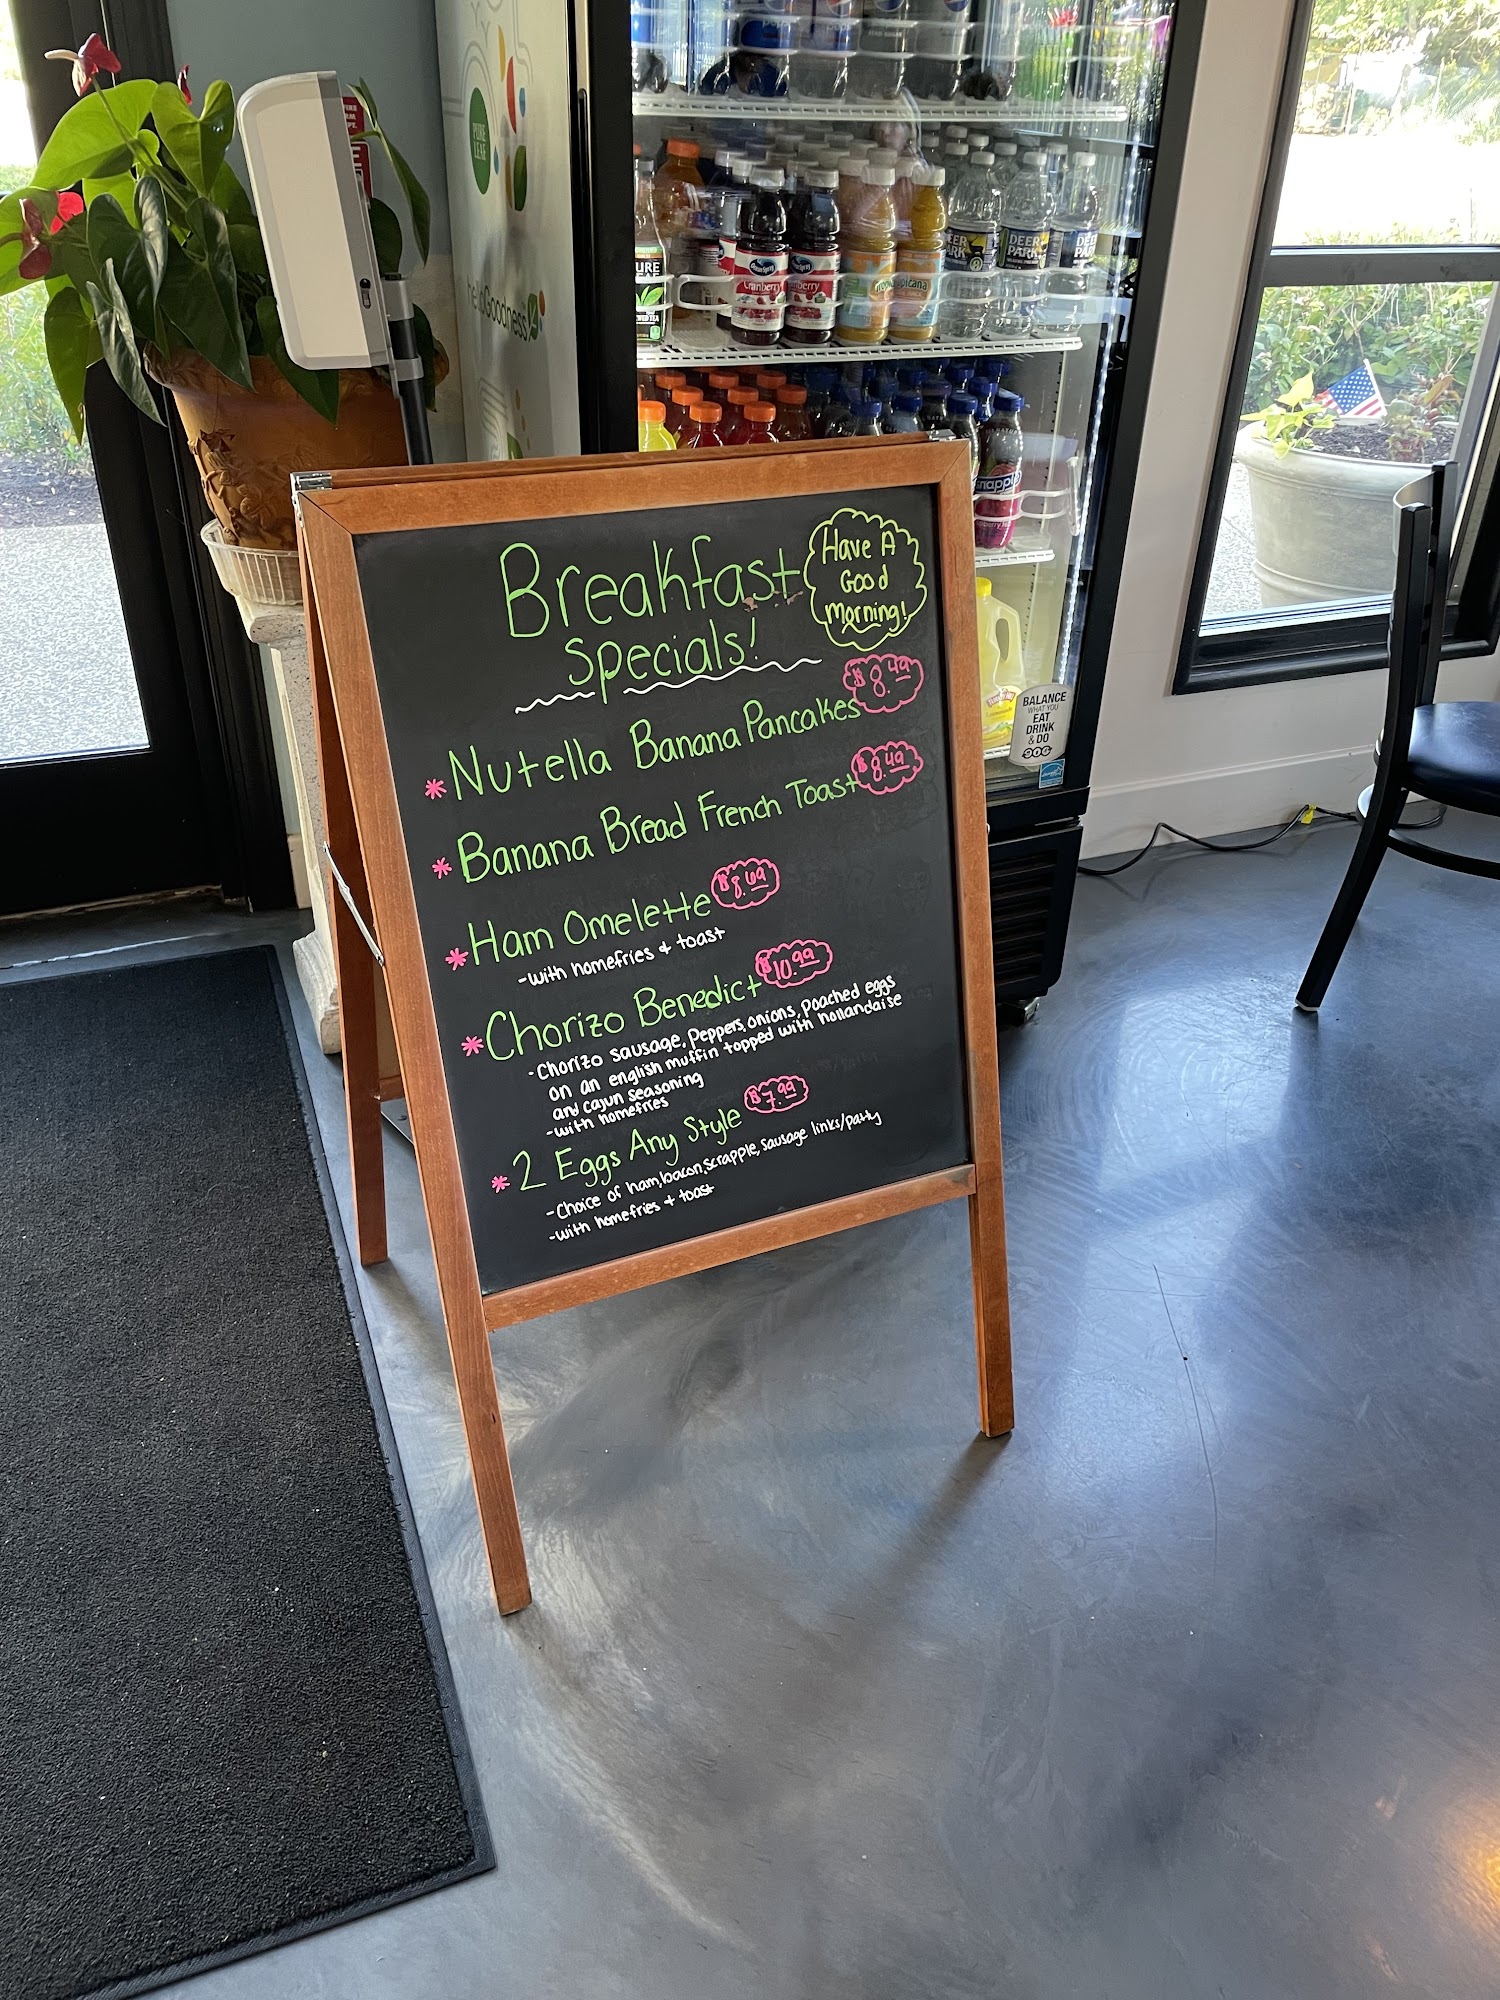 Breakfast
Specials!
Have A
Good
Morning!
* Nutella Banana Pancakes $8.49
* Banana Bread French Toast $8.49
* Ham Omelette $8.69
- with homefries & toast
* Chorizo Benedict $10.99
- Chorizo sausage, peppers, onions, poached eggs
on an english muffin topped with hollandaise
and cajun seasoning
- with homefries
* 2 Eggs Any Style $7.99
- Choice of ham, bacon, scrapple, sausage links/patty
- with homefries & toast
PURE
LEAF
helloGoodness
Cranberry
DEER
PARK
Tropicana
Snapple
BALANCE
WHAT YOU
EAT
DRINK
& DO